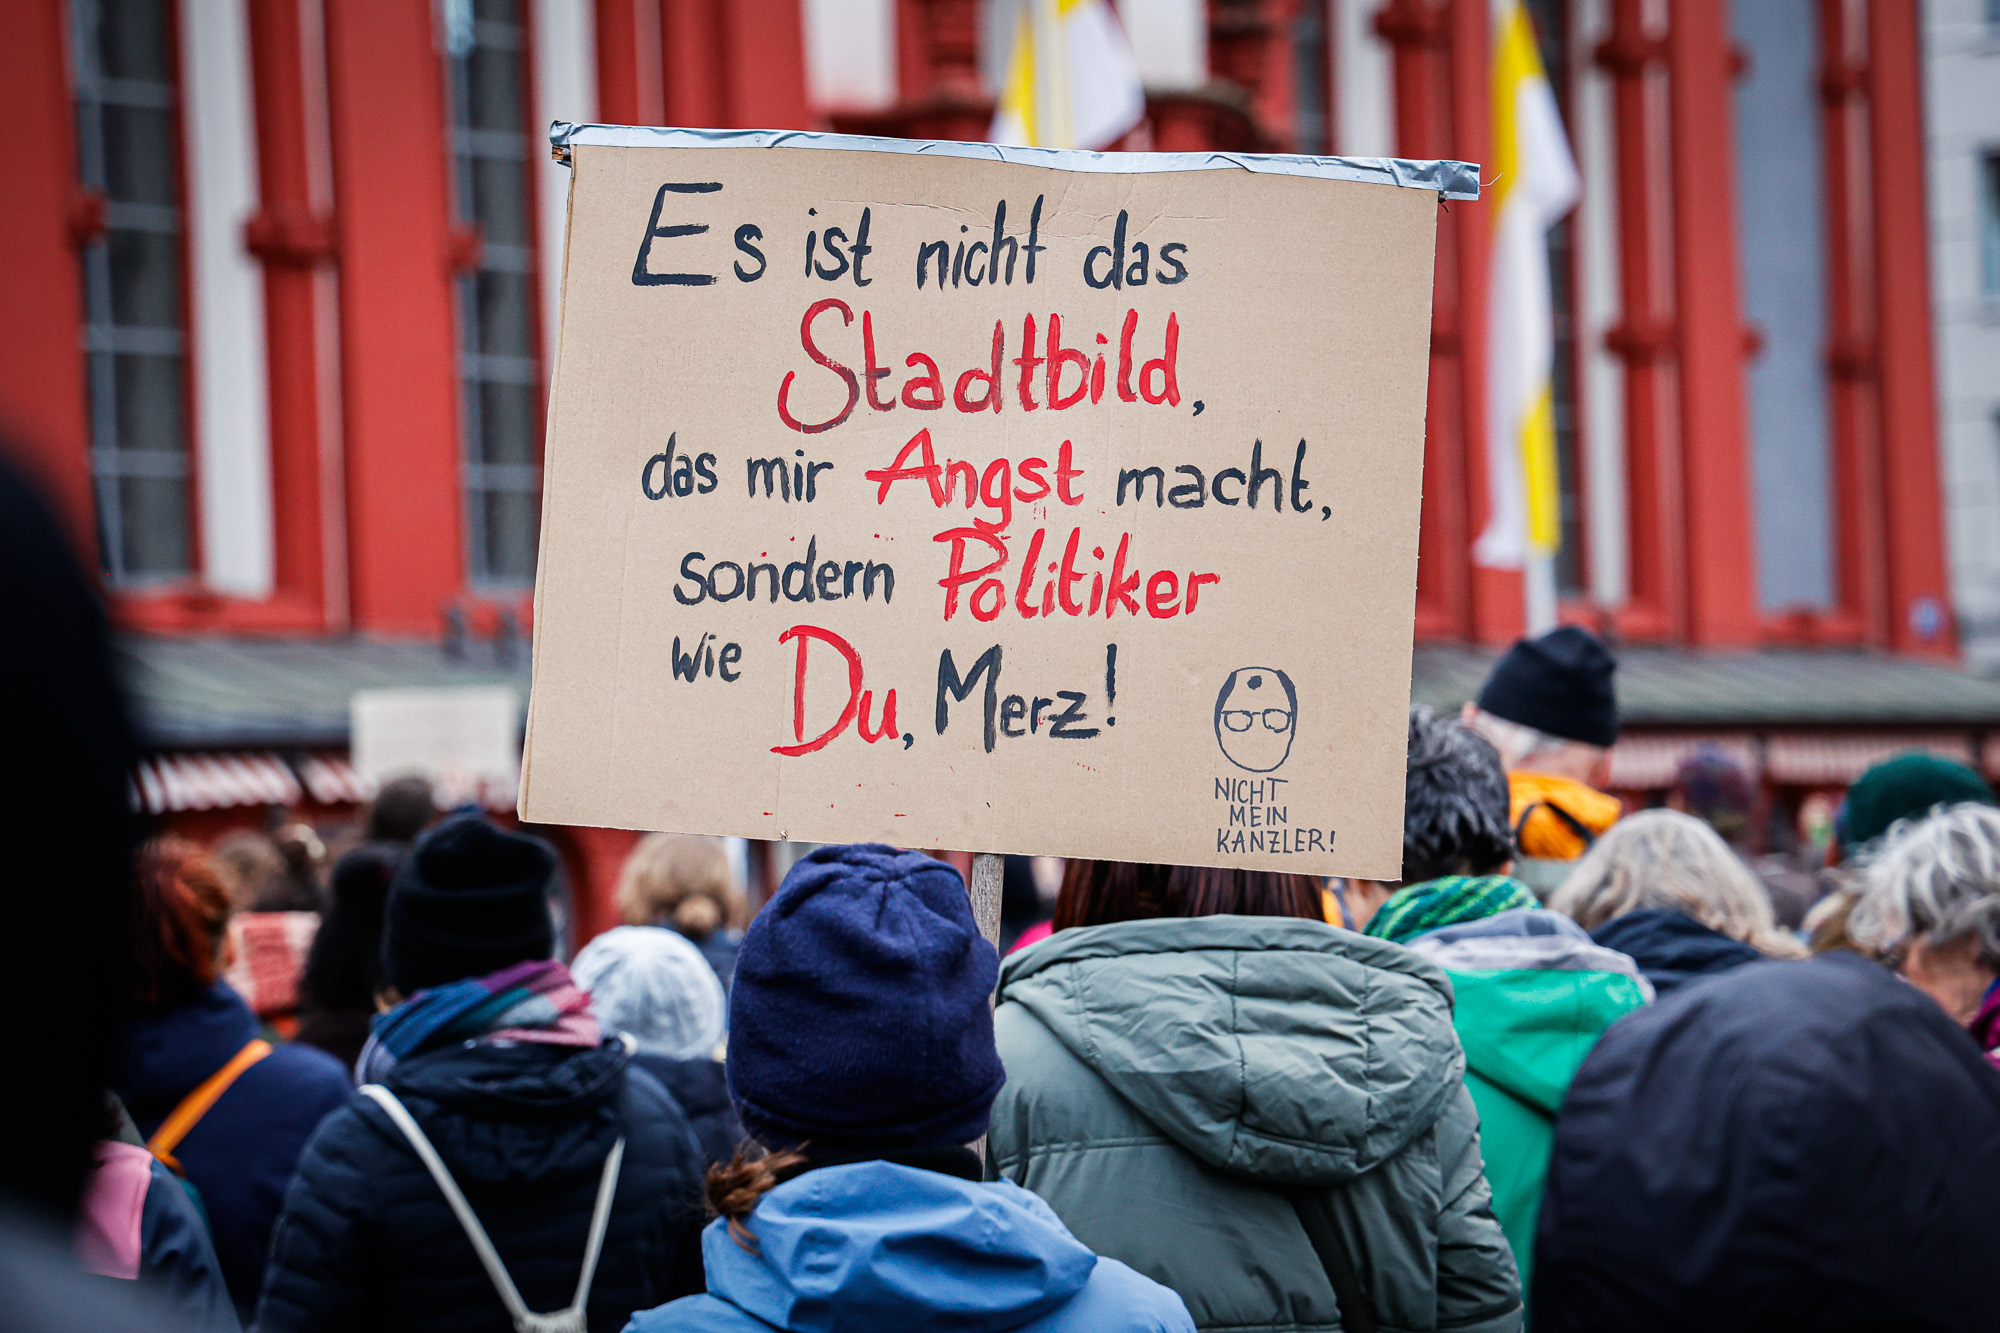 Es ist nicht das
Stadtbild,
das mir Angst macht,
sondern Politiker
wie Du, Merz!
NICHT
MEIN
KANZLER!